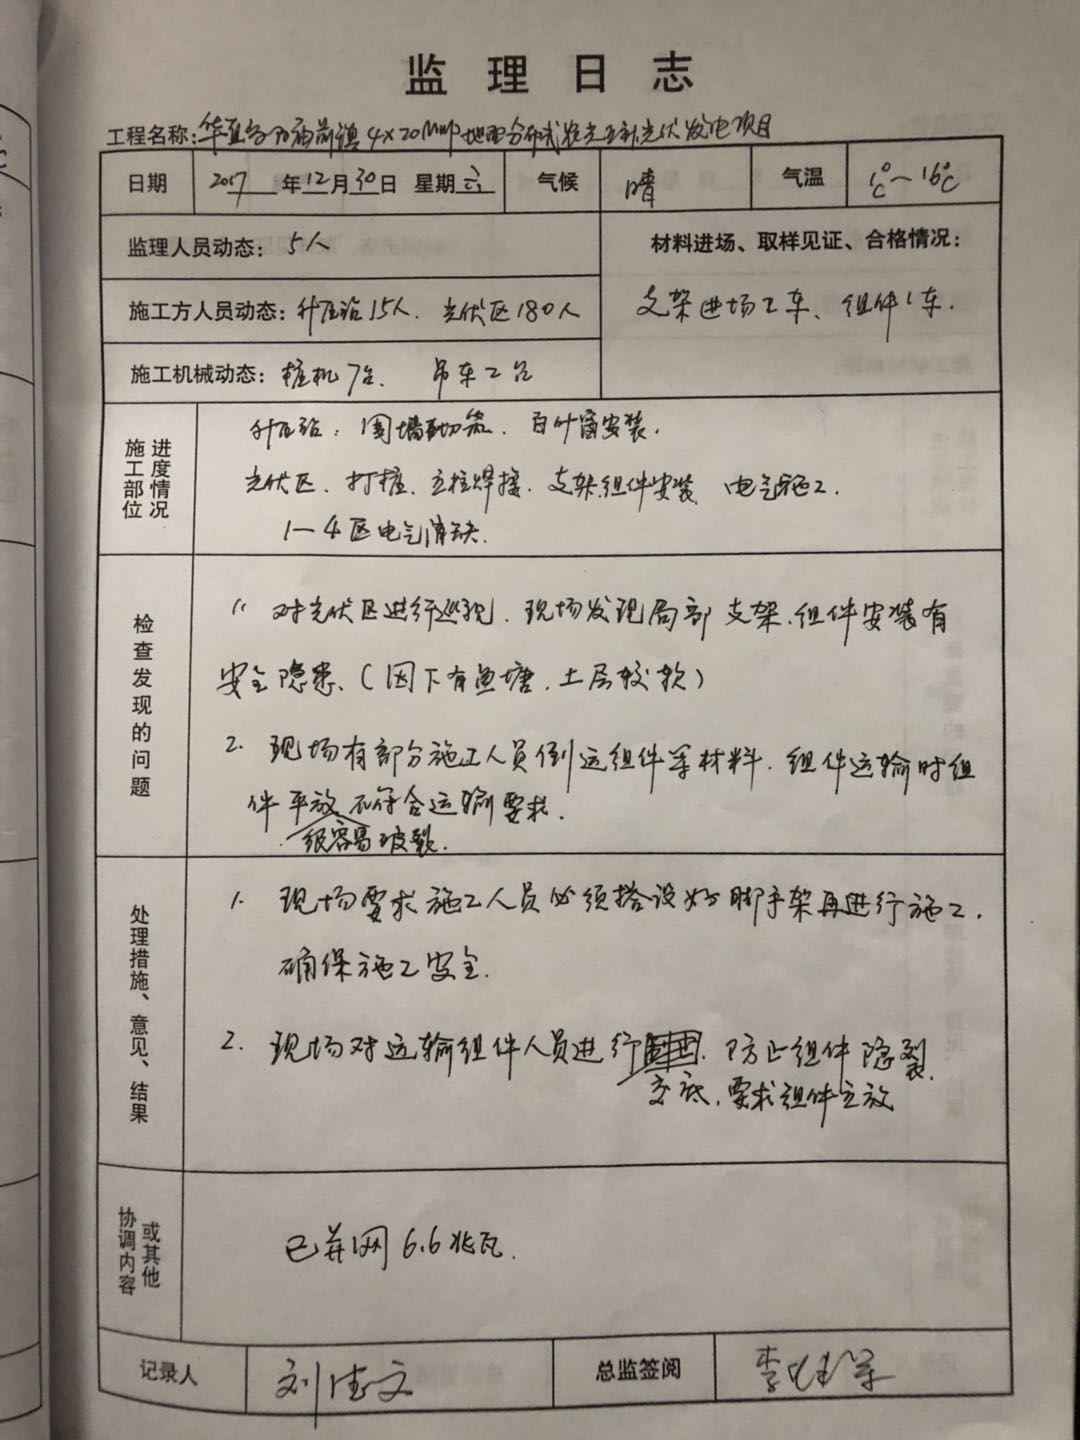 监理日志
工程名称: 4×20MWp地面分布式农光互补光伏发电项目
日期 2017年12月30日 星期六 气候 晴 气温 1℃~16℃
监理人员动态: 5人
材料进场、取样见证、合格情况:
施工方人员动态: 升压站15人、光伏区180人
支架进场2车、组件1车.
施工机械动态: 桩机7台、吊车2台
施工部位进度情况
升压站: 围墙砌筑、百叶窗安装.
光伏区、打桩、立柱焊接、支架.组件安装、电气施工.
1—4区电气消缺.
检查发现的问题
1. 对光伏区进行巡视.现场发现局部支架.组件安装有
安全隐患、(因下有鱼塘.土层较软)
2. 现场有部分施工人员倒运组件等材料.组件运输时组
件平放不符合运输要求.
很容易破裂.
处理措施、意见、结果
1. 现场要求施工人员必须搭设好脚手架再进行施工.
确保施工安全.
2. 现场对运输组件人员进行 .防止组件隐裂.
交底.要求组件立放
协调内容或其他
已并网6.6兆瓦.
记录人 刘 文 总监签阅 李